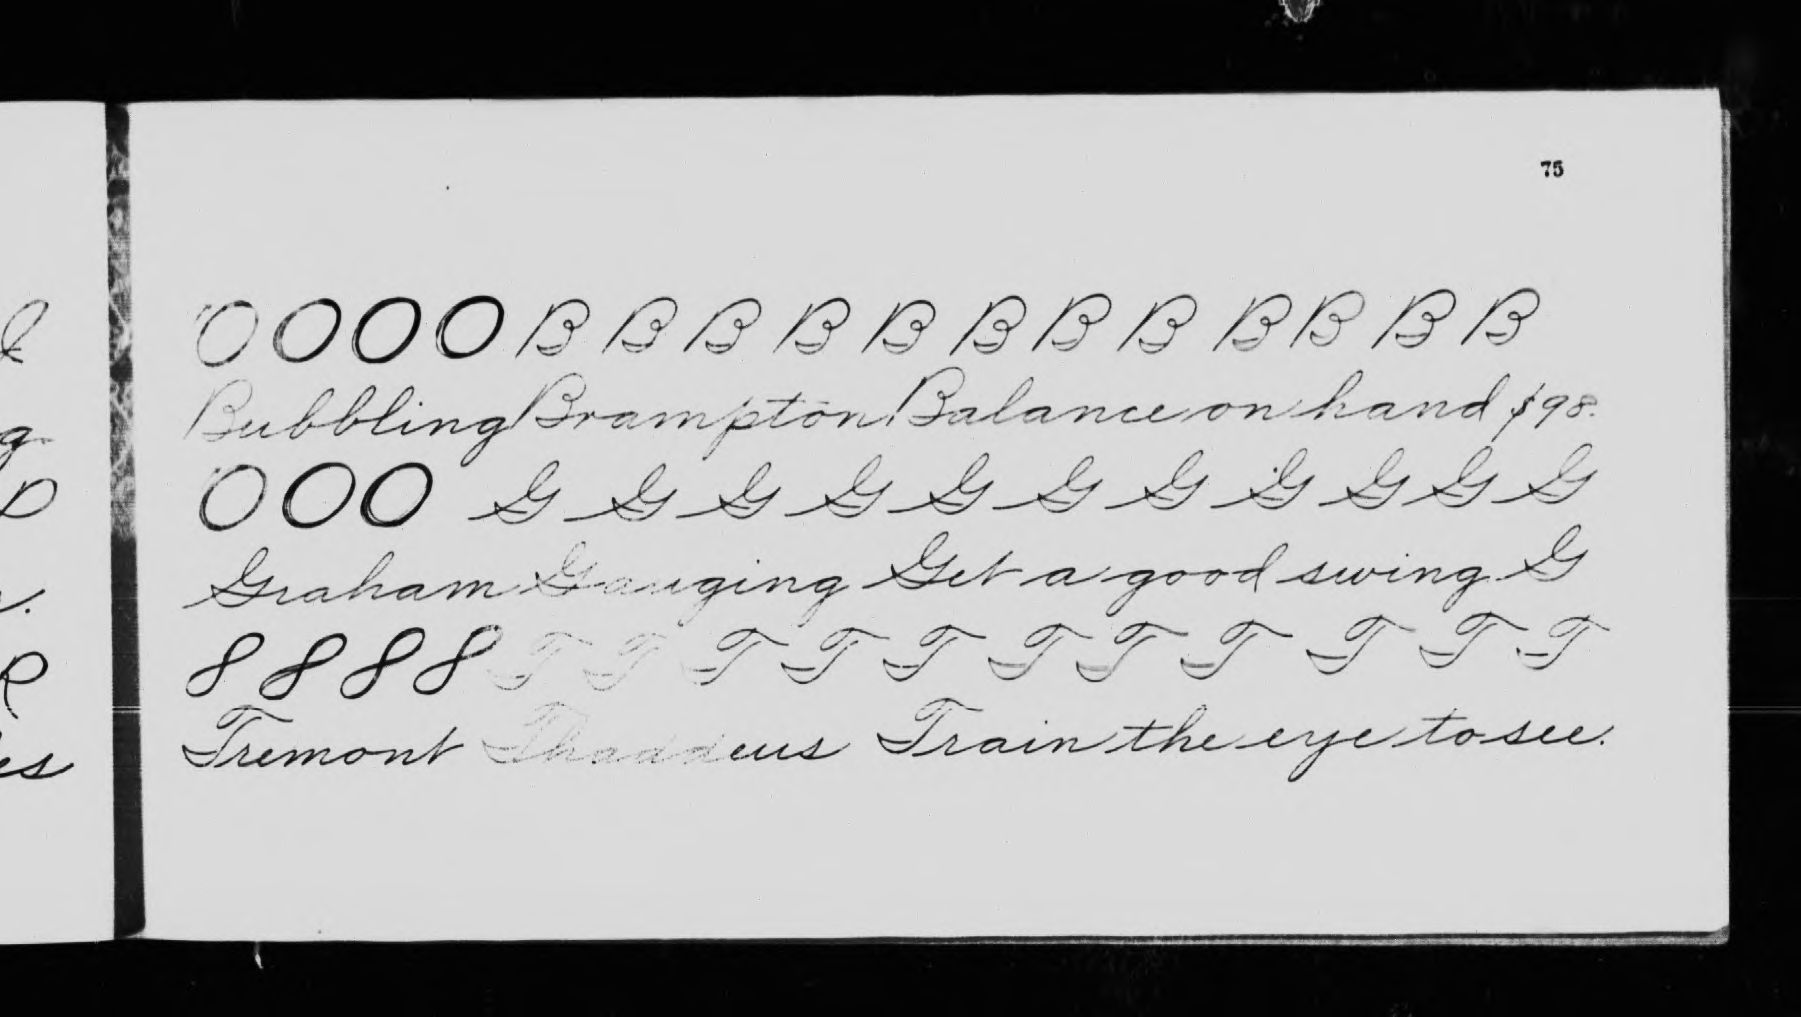 75
O O O O B B B B B B B B B B B B
Bubbling Brampton Balance on hand $98.
O O O G G G G G G G G G G G
Graham Gauging Get a good swing. G
8 8 8 8 T T T T T T T T T T T
Tremont Thaddeus Train the eye to see.